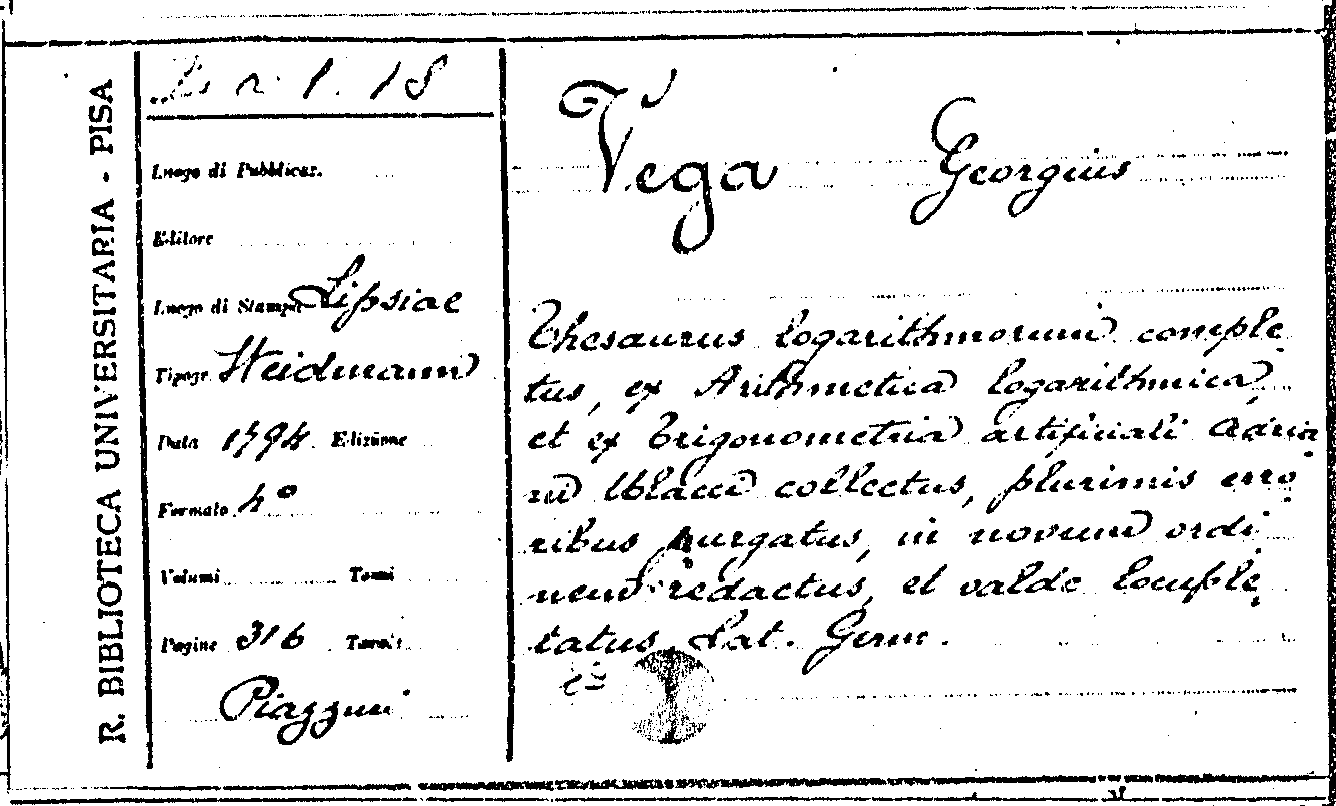 R. BIBLIOTECA UNIVERSITARIA - PISA
1. 18
Luogo di Pubblicaz.
Editore
Luogo di Stampa Lipsiae
Tipogr. Weidmann
Data 1794 Edizione
Formato 4°
Volumi Tomi
Pagine 316 Tavole
Piazzini
Vega Georgius
Thesaurus logarithmorum comple
tus, ex Arithmetica logarithmica,
et ex Trigonometria artificiali Adria
ni Vlacci collectus, plurimis erro
ribus purgatus, in novum ordi
nem redactus, et valde locuple
tatus. Lat. Germ.